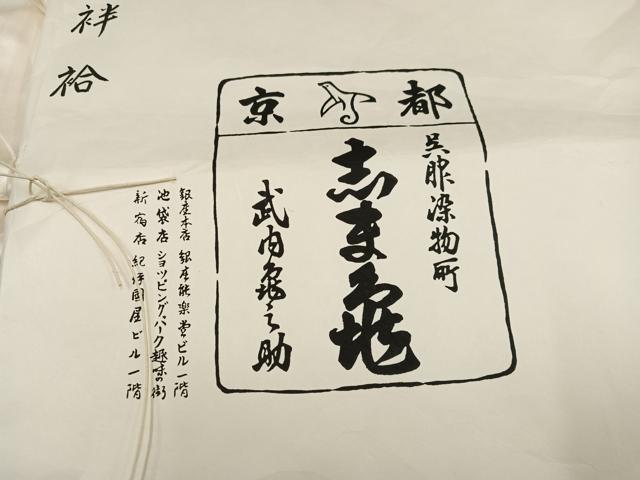 袢
袷
京都
呉服染物所
志ま亀
武内龜之助
銀座本店 銀座能楽堂ビル一階
池袋店 ショッピングパーク趣味の街
新宿店 紀伊國屋ビル一階